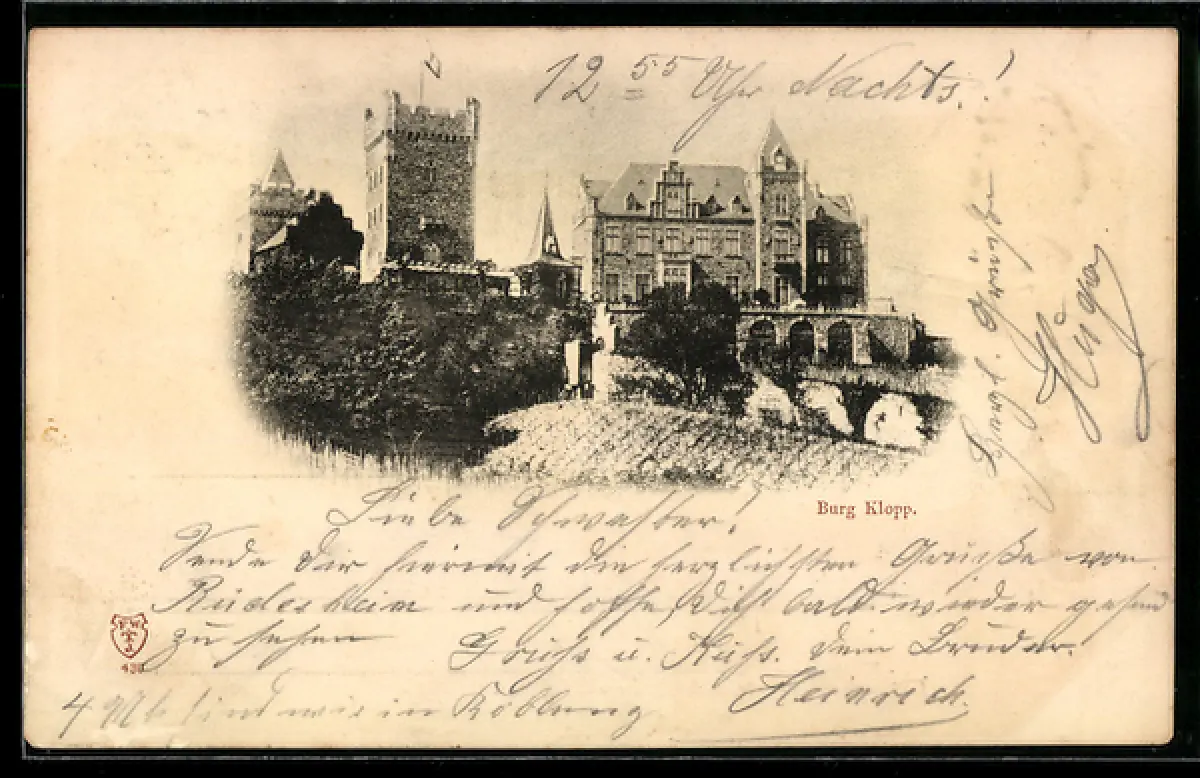 12 55 Uhr Nachts!
Herzl. Grüße
Hugo
Burg Klopp.
Liebe Schwester!
Sende Dir hiermit die herzlichsten Grüße von
Rüdesheim und hoffe Dich bald wieder gesund
zu sehen Gruß u. Kuß. Dein Bruder.
Heinrich.
4 Uh sind wir in Koblenz
F W